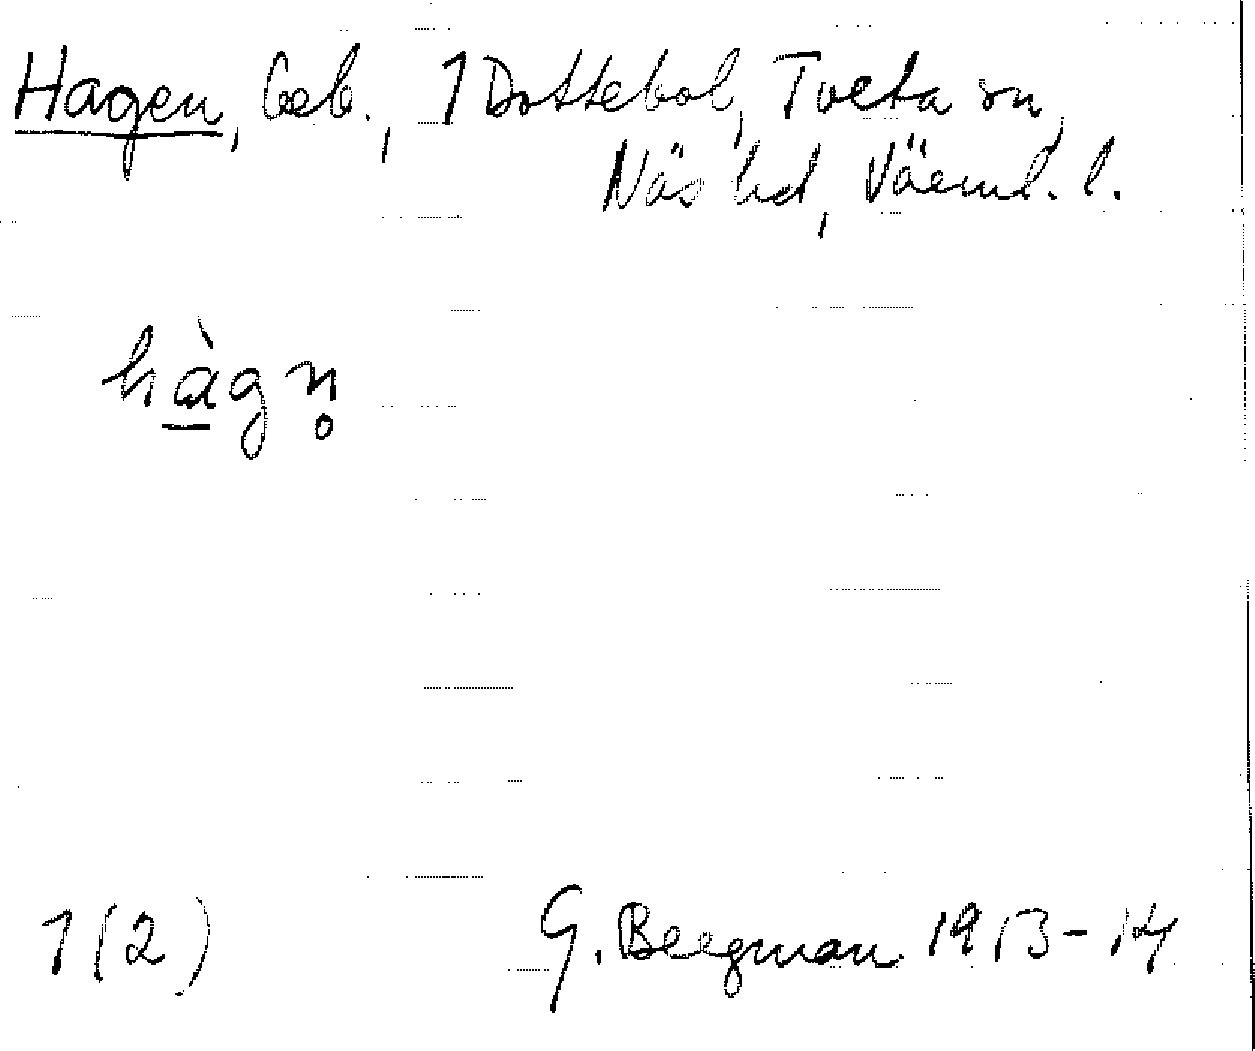 Hagen, Geb., 1 Dottebol, Tveta sn,
Näs hd, Värml. l.
hàgn̥
1(2) G. Bergman 1913-14